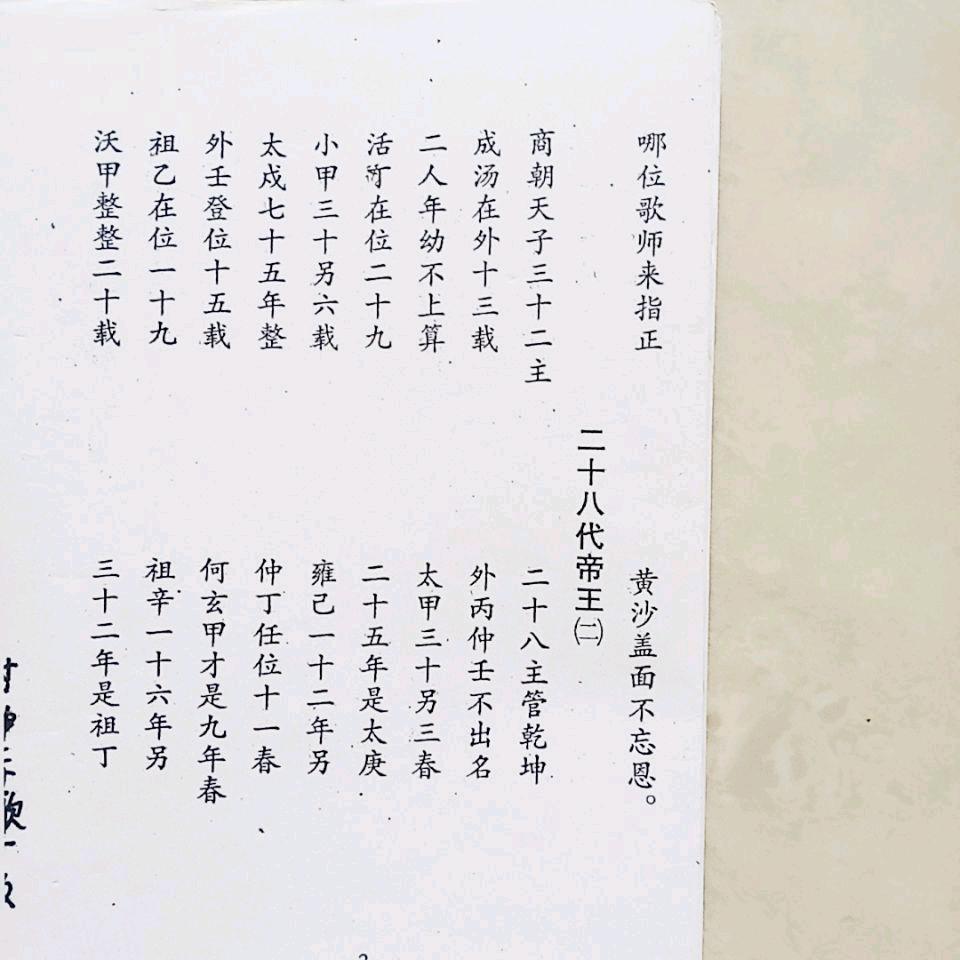 哪位歌师来指正
黄沙盖面不忘恩。
二十八代帝王㈡
商朝天子三十二主
二十八主管乾坤
成汤在外十三载
外丙仲壬不出名
二人年幼不上算
太甲三十另三春
活㝉在位二十九
二十五年是太庚
小甲三十另六载
雍己一十二年另
太戍七十五年整
仲丁任位十一春
外壬登位十五载
何玄甲才是九年春
祖乙在位一十九
祖辛一十六年另
沃甲整整二十载
三十二年是祖丁